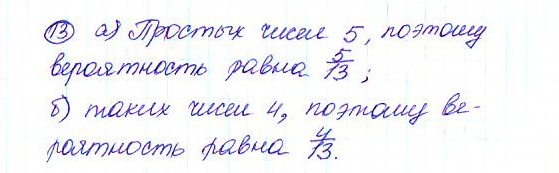 13 а) Простых чисел 5, поэтому
вероятность равна 5/13;
б) таких чисел 4, поэтому ве-
роятность равна 4/13.